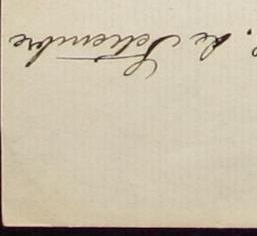 de Setiembre